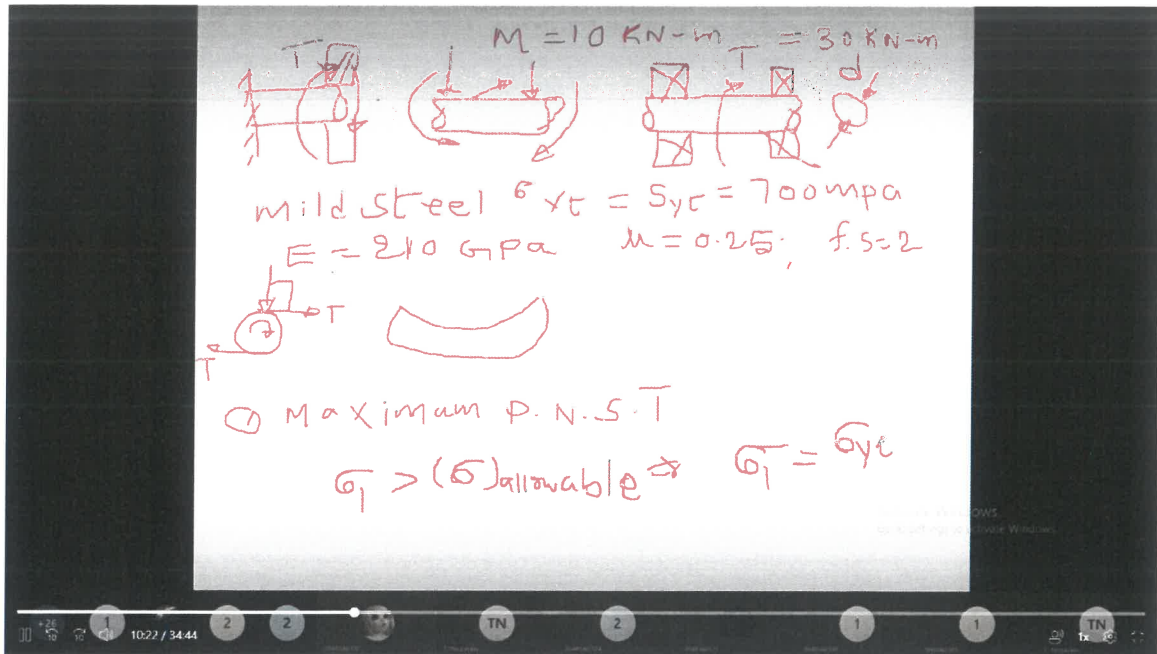 M = 10 KN-m T = 30 KN-m
T d
mild steel σyt = Syt = 700 mpa
E = 210 GPa μ = 0.25, f.s=2
T
T
① Maximum P.N.S.T
σ1 > (σ)allowable ⇒ σ1 = σyt
10:22 / 34:44
+26
10 10
1 2 2 TN 2 1 1 TN
1x